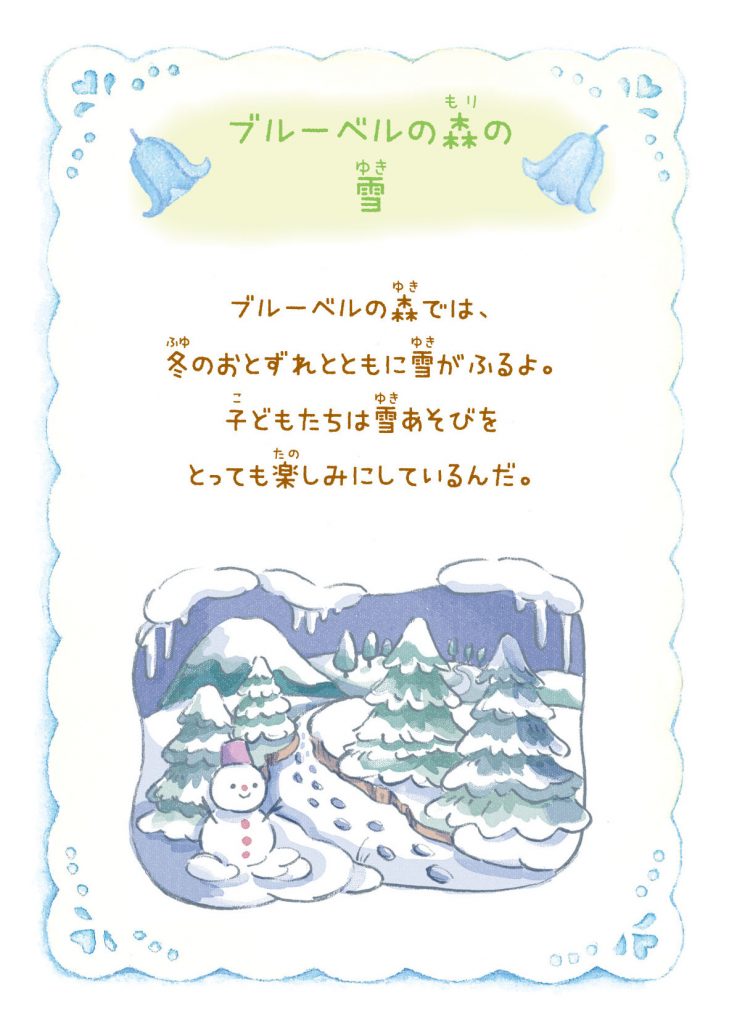 ブルーベルの森の
もり
雪
ゆき
ブルーベルの森では、
ゆき
冬のおとずれとともに雪がふるよ。
ふゆ ゆき
子どもたちは雪あそびを
こ ゆき
とっても楽しみにしているんだ。
たの